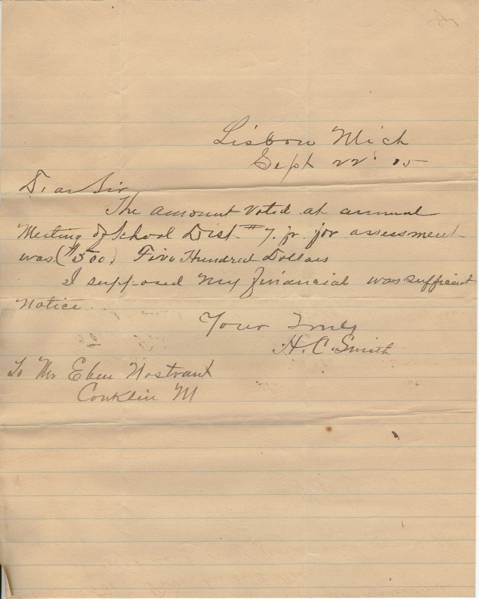 Lisbon Mich
Sept 22' 05
Dear Sir
The amount voted at annual
Meeting of School Dist. #7. jr. for assessment
was ($500) Five Hundred Dollars
I supposed my financial was sufficient
notice
Your Truly
H. C. Smith
To Mr Eben Nostrant
Conklin M